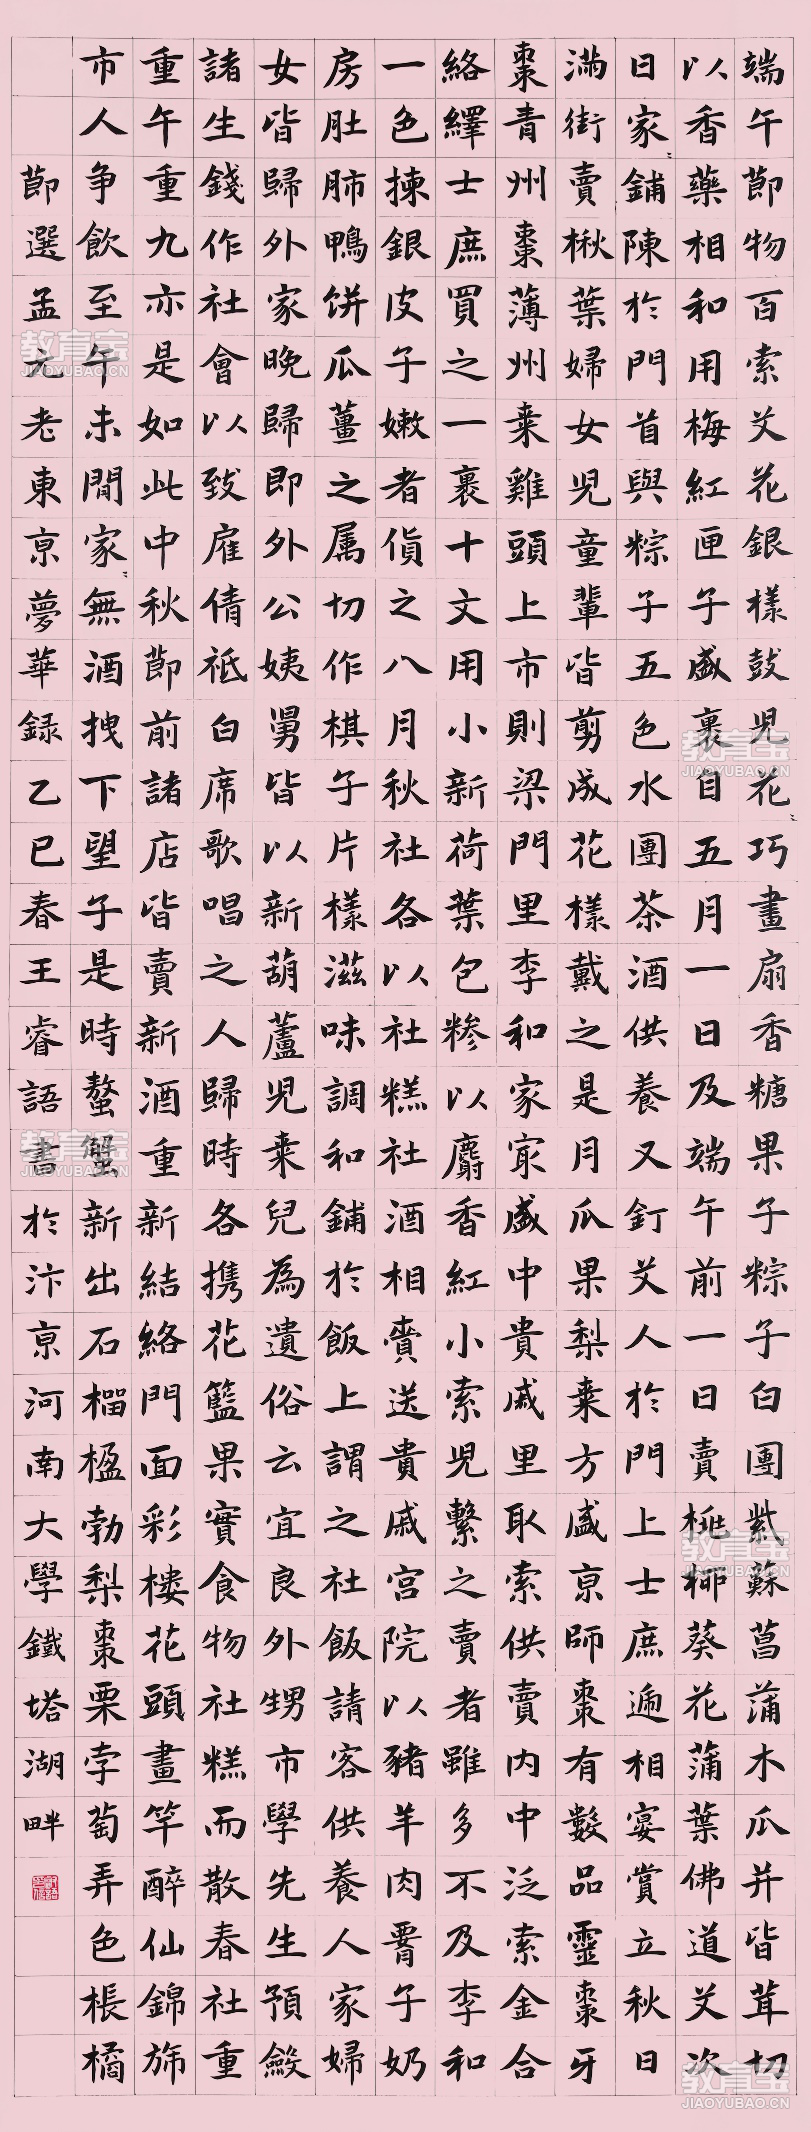 端午節物百索艾花銀樣鼓児花〻巧畫扇香糖果子粽子白團紫蘇菖蒲木瓜并皆茸切
以香藥相和用梅紅匣子盛裹自五月一日及端午前一日賣桃柳葵花蒲葉佛道艾次
日家〻鋪陳於門首與粽子五色水團茶酒供養又釘艾人於門上士庶遞相宴賞立秋日
滿街賣楸葉婦女児童輩皆剪成花樣戴之是月瓜果梨棗方盛京師棗有數品靈棗牙
棗青州棗薄州棗雞頭上市則梁門里李和家最盛中貴戚里取索供賣内中泛索金合
絡繹士庶買之一裹十文用小新荷葉包糝以麝香紅小索児繫之賣者雖多不及李和
一色揀銀皮子嫩者貨之八月秋社各以社糕社酒相賫送貴戚宮院以豬羊肉腎子奶
房肚肺鴨饼瓜薑之属切作棋子片樣滋味調和鋪於飯上謂之社飯請客供養人家婦
女皆歸外家晚歸即外公姨舅皆以新葫蘆児棗兒為遺俗云宜良外甥市學先生預斂
諸生錢作社會以致雇倩祗白席歌唱之人歸時各携花籃果實食物社糕而散春社重
重午重九亦是如此中秋節前諸店皆賣新酒重新結絡門面彩楼花頭畫竿醉仙錦旆
市人争飲至午未間家〻無酒拽下望子是時螯蟹新出石榴榲勃梨棗栗孛萄弄色棖橘
節選孟元老東京夢華録乙巳春王睿語書於汴京河南大學鐵塔湖畔
教育宝
JIAOYUBAO.CN
教育宝
JIAOYUBAO.CN
教育宝
JIAOYUBAO.CN
教育宝
JIAOYUBAO.CN
教育宝
JIAOYUBAO.CN